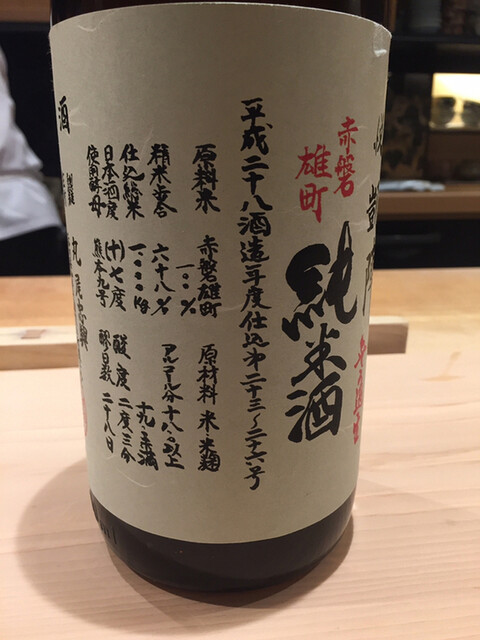 凱陣
赤磐
雄町
純米酒
平成二十八酒造年度仕込第二十三〜二十六号
原料米 赤磐雄町 一〇〇% 原材料 米・米麹
精米歩合 六十八% アルコール分 十八度以上
十九度未満
仕込総米 一〇〇〇kg
日本酒度 (十)七度 酸度 二度三分
使用酵母 熊本九号 醪日数 二十八日
酒
丸尾忠興